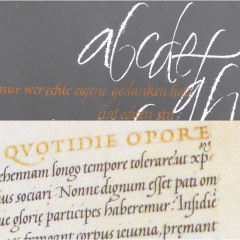 abcdef
nur wer echte eigene gedanken hat
hat echten stil
gh
QVOTIDIE OPORE
ehennam longo tempore tolerare: ut xp̄
us sociari. Nonne dignum esset pati om
ue glorię participes haberemur? Insidię
frangant corpus ieiunia, premant